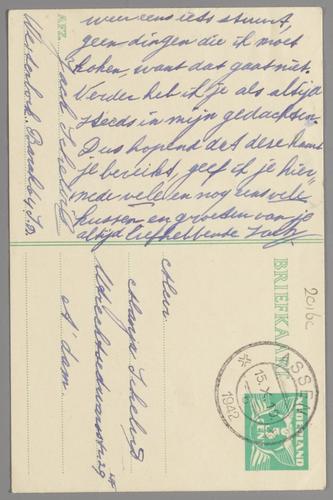 weer eens iets stuurt,
geen dingen die ik moet
koken, want dat gaat niet.
Verder heb ik je als altijd
steeds in mijn gedachten.
Dus hopend dat deze kaart
je bereikt, geef ik je hier
mede vele en nog eens vele
kussen en groeten van je
altijd liefhebbende Jack
AFZ.
Jack Schelvis
Westerbork. Barak 64 
BRIEFKAART
201bc
Mevr.
A'dam.
ASSEN
15.X
1942
NEDERLAND
5 CENT